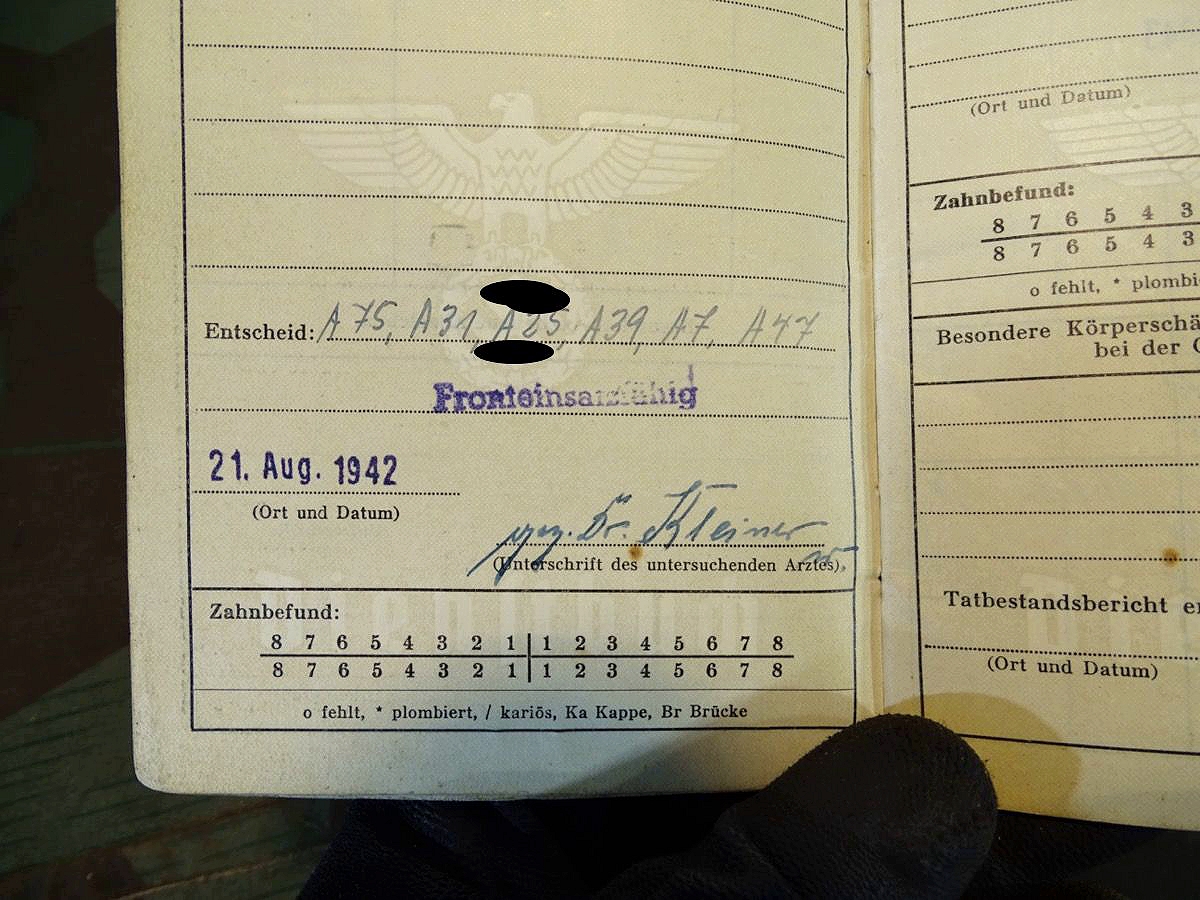 Entscheid: A 75, A 31, A 25, A 39, A 7, A 47
Fronteinsatzfähig
21. Aug. 1942
(Ort und Datum)
gez. Dr. Kleiner
(Unterschrift des untersuchenden Arztes)
Zahnbefund:
8 7 6 5 4 3 2 1 1 2 3 4 5 6 7 8
8 7 6 5 4 3 2 1 1 2 3 4 5 6 7 8
o fehlt, * plombiert, / kariös, Ka Kappe, Br Brücke
(Ort und Datum)
Zahnbefund:
8 7 6 5 4 3
8 7 6 5 4 3
o fehlt, * plombie
Besondere Körperschä
bei der
Tatbestandsbericht
(Ort und Datum)